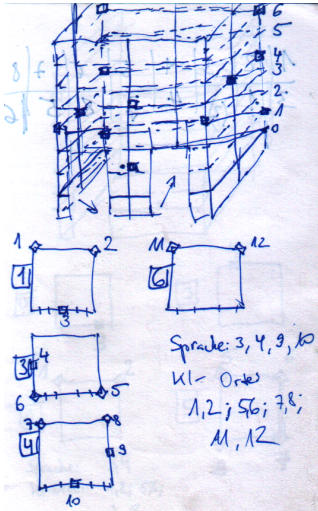 6
5
4
3
2
1
0
1 2
1
3
11 12
6
4
3
6 5
7 8
4
9
10
Sprache: 3, 4, 9, 10
Kl- Order
1,2; 5,6; 7,8;
11, 12